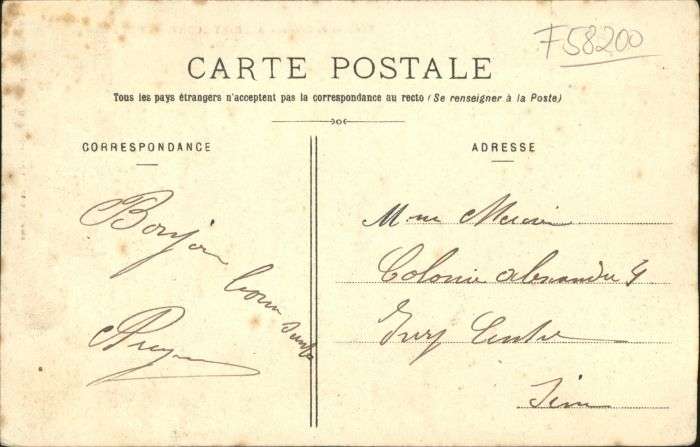 F58200
CARTE POSTALE
Tous les pays étrangers n'acceptent pas la correspondance au recto (Se renseigner à la Poste)
CORRESPONDANCE
ADRESSE
Bonjour
bonne santé
Mme Mercier
Colonie Alexandre 4
Ivry Centre
Seine